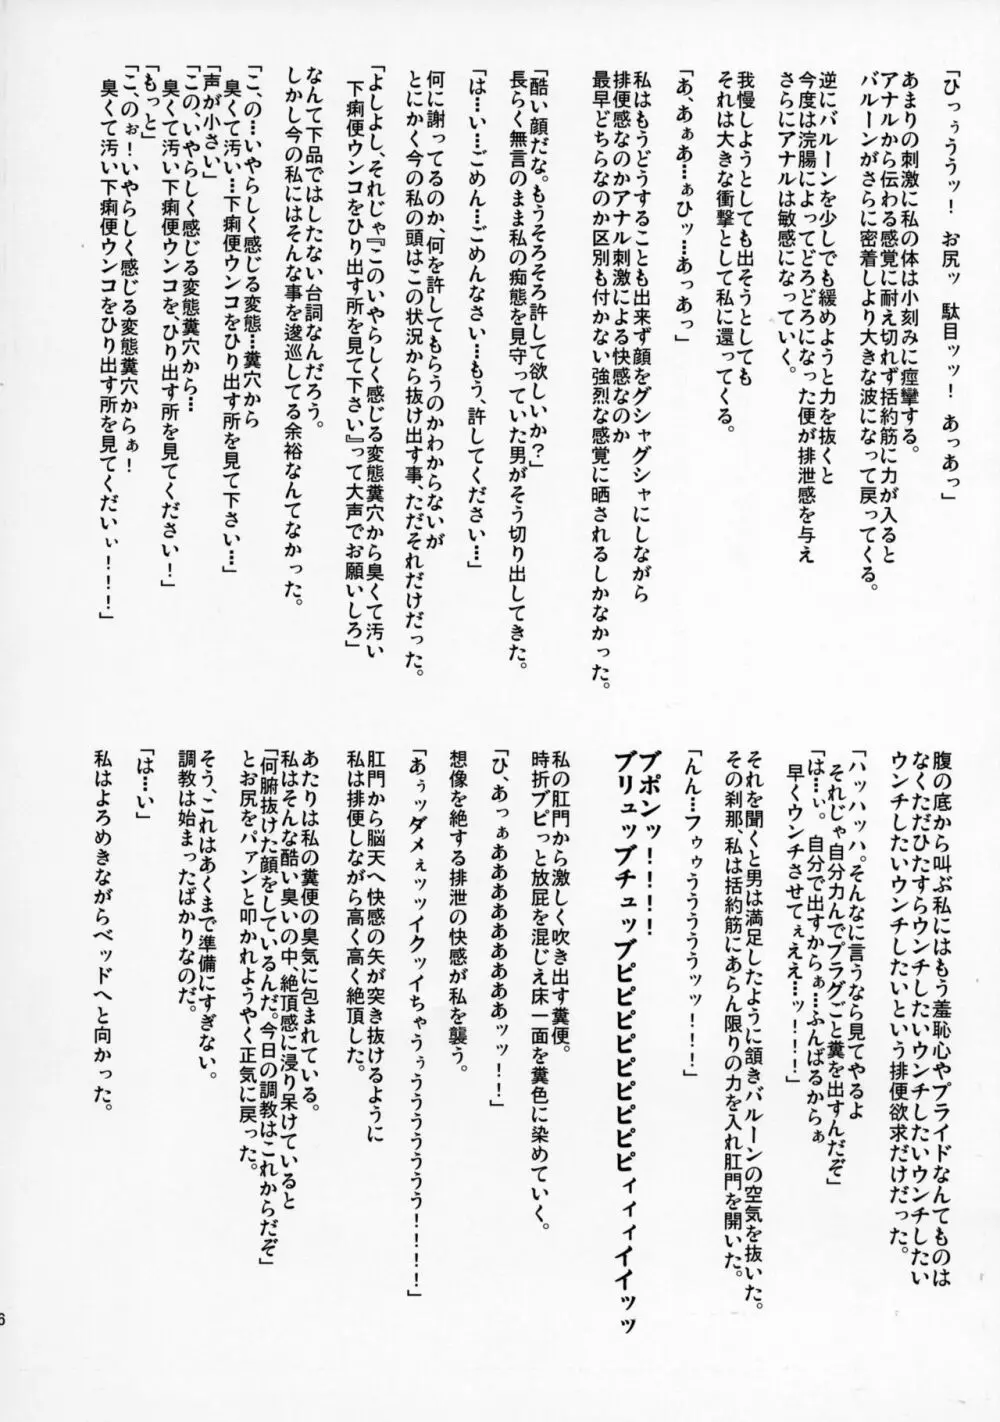 「ひっぅううッ！　お尻ッ　駄目ッッ！　あっあっ」
あまりの刺激に私の体は小刻みに痙攣する。
アナルから伝わる感覚に耐え切れず括約筋に力が入ると
バルーンがさらに密着しより大きな波になって戻ってくる。
逆にバルーンを少しでも緩めようと力を抜くと
今度は浣腸によってどろどろになった便が排泄感を与え
さらにアナルは敏感になっていく。
我慢しようとしても出そうとしても
それは大きな衝撃として私に還ってくる。
「あ、あぁあ…ぁひッ…あっあっ」
私はもうどうすることも出来ず顔をグシャグシャにしながら
排便感なのかアナル刺激による快感なのか
最早どちらなのか区別も付かない強烈な感覚に晒されるしかなかった。
「酷い顔だな。もうそろそろ許して欲しいか？」
長らく無言のまま私の痴態を見守っていた男がそう切り出してきた。
「は…い…ごめん…ごめんなさい…もう、許してください…」
何に謝ってるのか、何を許してもらうのかわからないが
とにかく今の私の頭はこの状況から抜け出す事、ただそれだけだった。
「よしよし、それじゃ『このいやらしく感じる変態糞穴から臭くて汚い
下痢便ウンコをひり出す所を見て下さい』って大声でお願いしろ」
なんて下品ではしたない台詞なんだろう。
しかし今の私にはそんな事を逡巡してる余裕なんてなかった。
「こ、の…いやらしく感じる変態…糞穴から
臭くて汚い…下痢便ウンコをひり出す所を見て下さい…
「声が小さい」
「この、いやらしく感じる変態糞穴から…
臭くて汚い下痢便ウンコを、ひり出す所を見てください！」
「もっと」
「こ、のぉ！いやらしく感じる変態糞穴からぁ！
臭くて汚い下痢便ウンコをひり出す所を見てくだいぃ！！！」
腹の底から叫ぶ私にはもう羞恥心やプライドなんてものは
なくただひたすらウンチしたいウンチしたいウンチしたい
ウンチしたいウンチしたいという排便欲求だけだった。
「ハッハッハ。そんなに言うなら見てやるよ
それじゃ自分力んでプラグごと糞を出すんだぞ」
「は…ぃ。自分で出すからぁ…ふんばるからぁ
早くウンチさせてぇええ…ッ！！！」
それを聞くと男は満足したように頷きバルーンの空気を抜いた。
その刹那、私は括約筋にあらん限りの力を入れ肛門を開いた。
「んん…フゥゥううううッッ！！！」
ブポンッ！！！！
ブリュッブチュッブピピピピピピピピィィィイイッッ
私の肛門から激しく吹き出す糞便。
時折ブピっと放屁を混じえ床一面を糞色に染めていく。
「ひ、あっぁああああああああッッ！！」
想像を絶する排泄の快感が私を襲う。
「あぅッダメぇッッイクッイちゃうぅうううううう！！！！」
肛門から脳天へ快感の矢が突き抜けるように
私は排便しながら高く高く絶頂した。
あたりは私の糞便の臭気に包まれている。
私はそんな酷い臭いの中、絶頂感に浸り呆けていると
「何腑抜けた顔をしているんだ。今日の調教はこれからだぞ」
とお尻をパァンと叩かれようやく正気に戻った。
そう、これはあくまで準備にすぎない。
調教は始まったばかりなのだ。
「は…い」
私はよろめきながらベッドへと向かった。
6